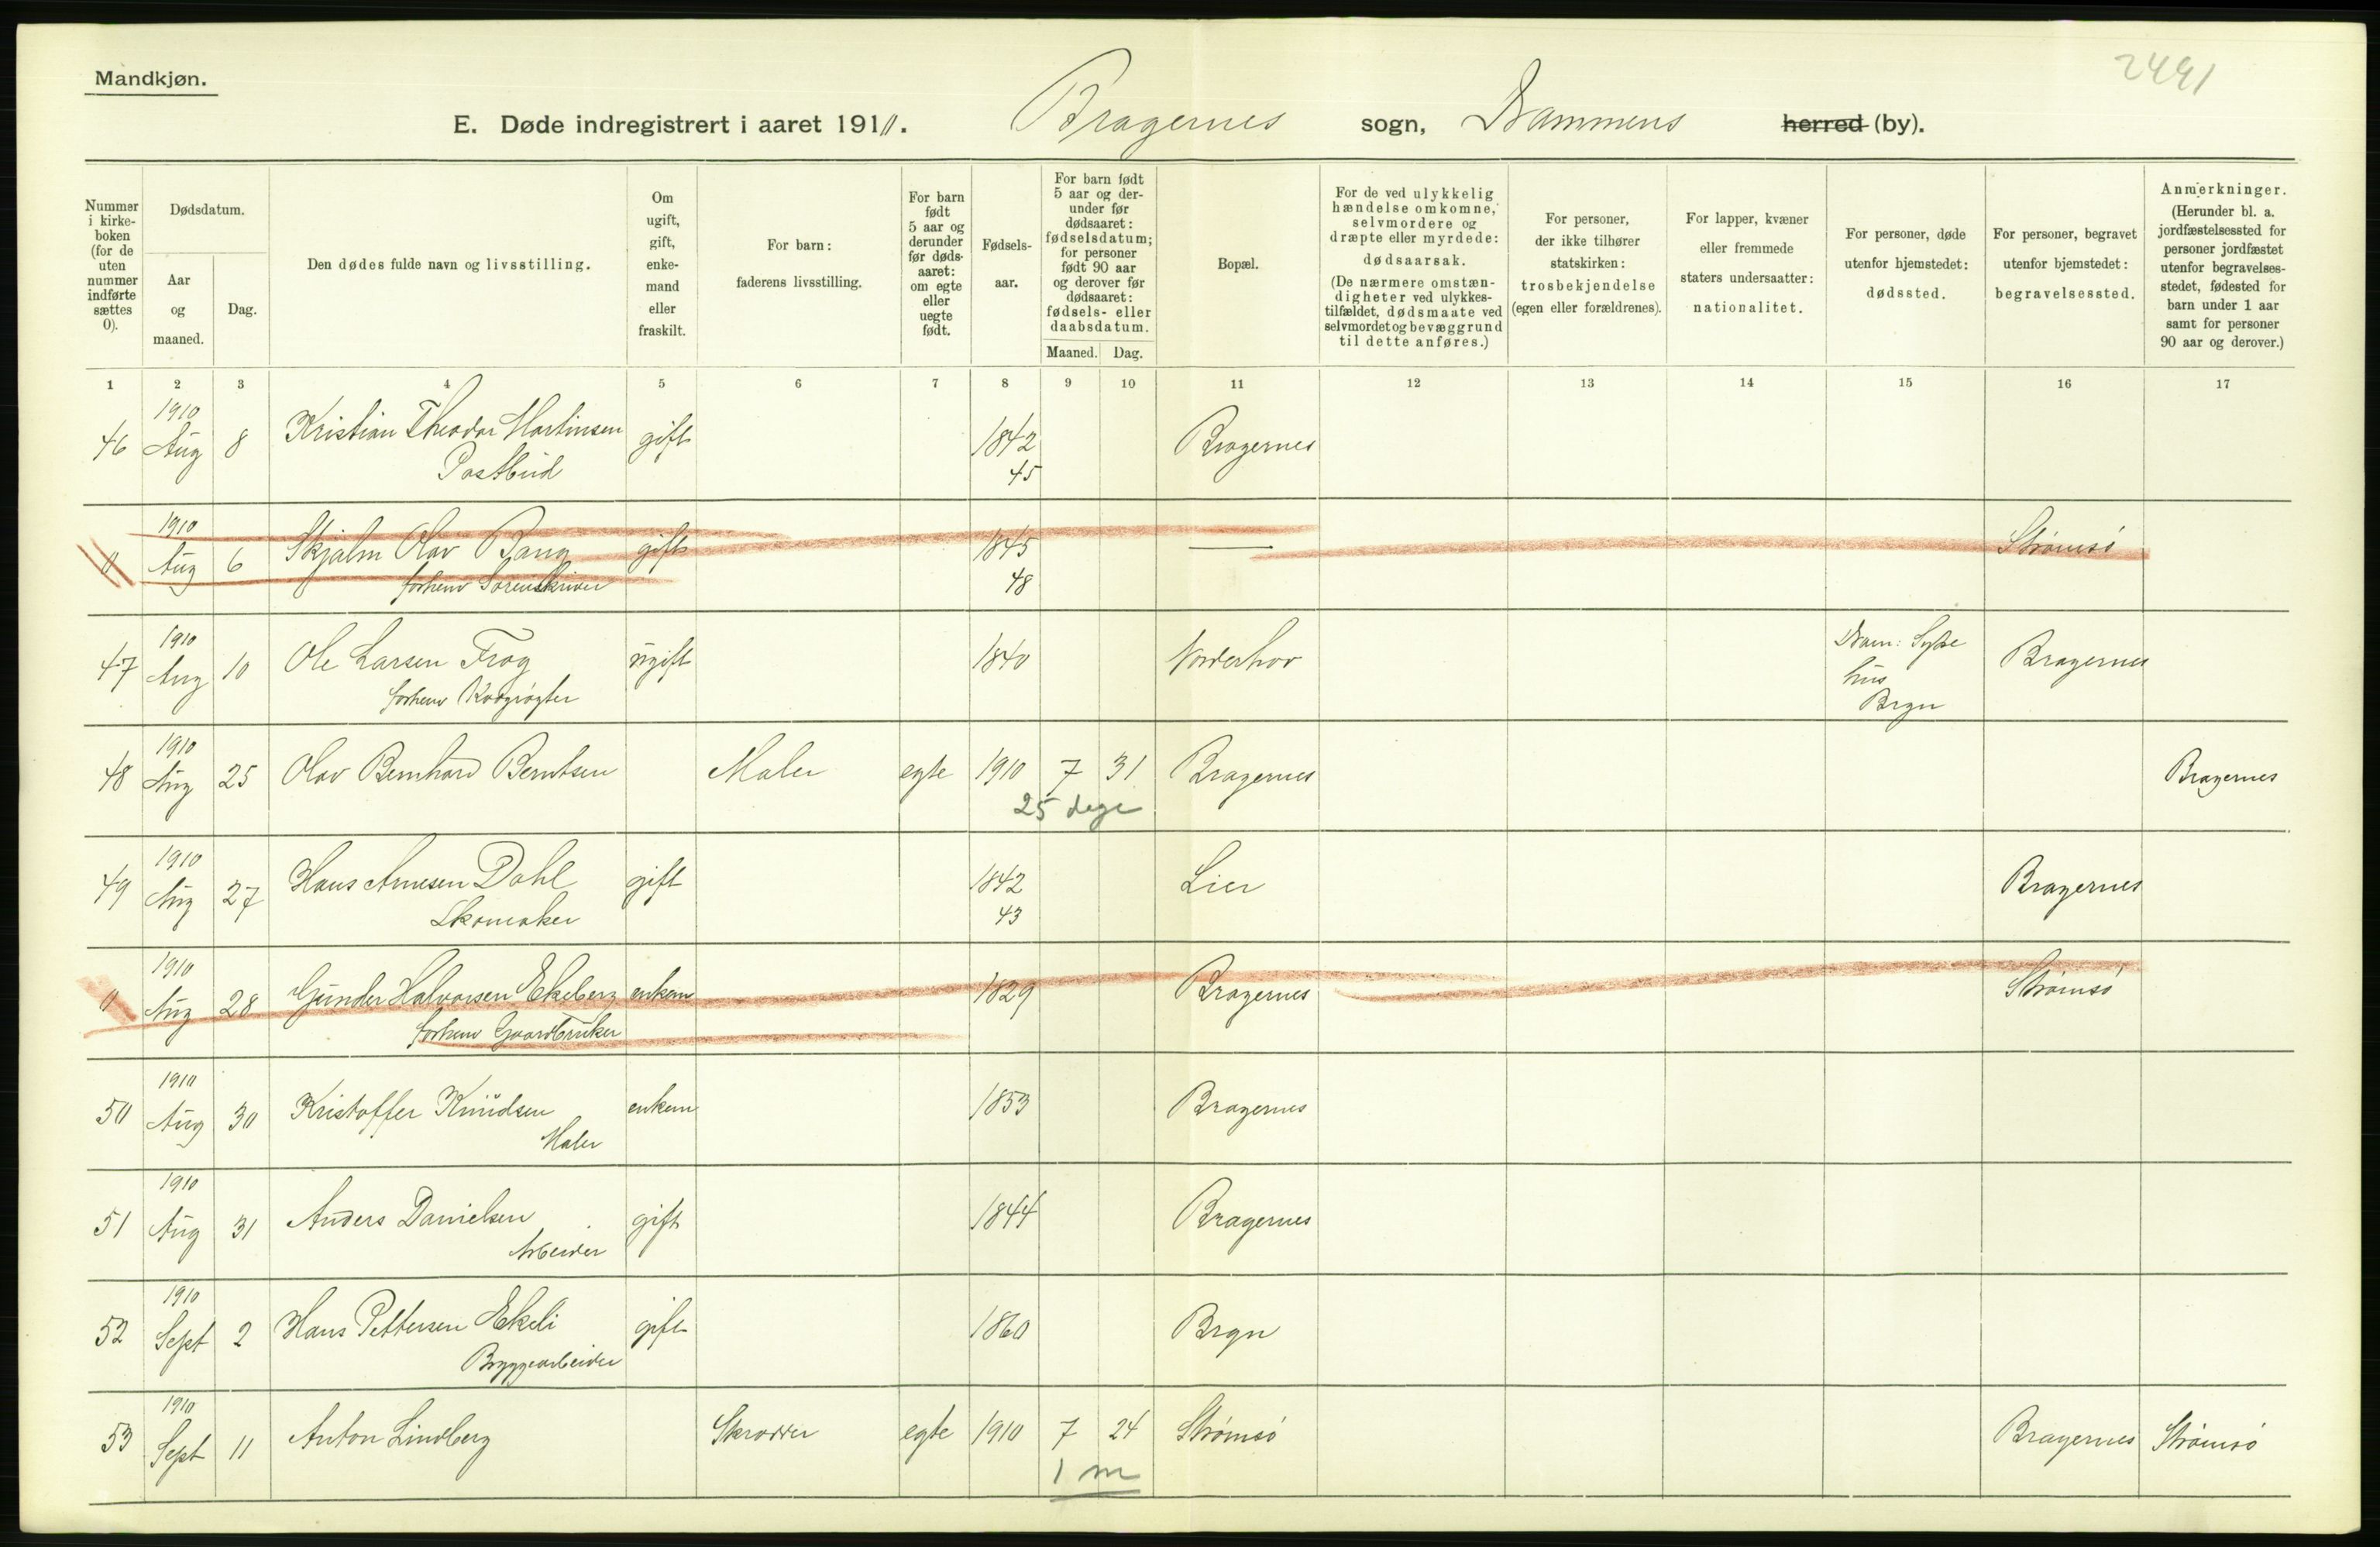 2491
Mandkjøn.
E. Døde indregistrert i aaret 1910. Bragernes sogn, Drammens herred (by).
Nummer i kirke-boken (for de uten nummer indførte sættes 0).
Dødsdatum.
Aar og maaned.
Dag.
Den dødes fulde navn og livsstilling.
Om ugift, gift, enke-mand eller fraskilt.
For barn: faderens livsstilling.
For barn født 5 aar og derunder før døds-aaret: om egte eller uegte født.
Fødsels-aar.
For barn født 5 aar og der-under før dødsaaret: fødselsdatum; for personer født 90 aar og derover før dødsaaret: fødsels- eller daabsdatum.
Maaned. Dag.
Bopæl.
For de ved ulykkelig hændelse omkomne, selvmordere og dræpte eller myrdede: dødsaarsak.
(De nærmere omstæn-digheter ved ulykkes-tilfældet, dødsmaate ved selvmordet og bevæggrund til dette anføres.)
For personer, der ikke tilhører statskirken: trosbekjendelse (egen eller forældrenes).
For lapper, kvæner eller fremmede staters undersaatter: nationalitet.
For personer, døde utenfor hjemstedet: dødssted.
For personer, begravet utenfor hjemstedet: begravelsessted.
Anmerkninger. (Herunder bl. a. jordfæstelsessted for personer jordfæstet utenfor begravelses-stedet, fødested for barn under 1 aar samt for personer 90 aar og derover.)
1 2 3 4 5 6 7 8 9 10 11 12 13 14 15 16 17
1910
46 Aug 8 Kristian Theodor Martinsen gift 1842 Bragernes
Postbud 45
1910
0 Aug 6 Skjalm Olav Bang gift 1845 — Strømsø
forhenv Sorenskriver 48
1910
47 Aug 10 Ole Larsen Frog ugift 1840 Norderhov Dram: Syke Bragernes
forhenv hus
Brgn
1910
48 Aug 25 Olav Bernhard Berntsen Maler egte 1910 7 31 Bragernes Bragernes
25 dage
1910
49 Aug 27 Hans Arnesen Dahl gift 1842 Lier Bragernes
Skomaker 43
1910
0 Aug 28 Gunder Halvorsen Ekeberg enkem 1829 Bragernes Strømsø
forhenv Gaardbruker
1910
50 Aug 30 Kristoffer Knudsen enkem 1853 Bragernes
Maler
1910
51 Aug 31 Anders Danielsen gift 1844 Bragernes
Arbeider
1910
52 Sept 2 Hans Pettersen Ekeli gift 1860 Brgn
Bryggearbeider
1910
53 Sept 11 Anton Lindberg Skrædder egte 1910 7 24 Strømsø Bragernes Strømsø
1 m